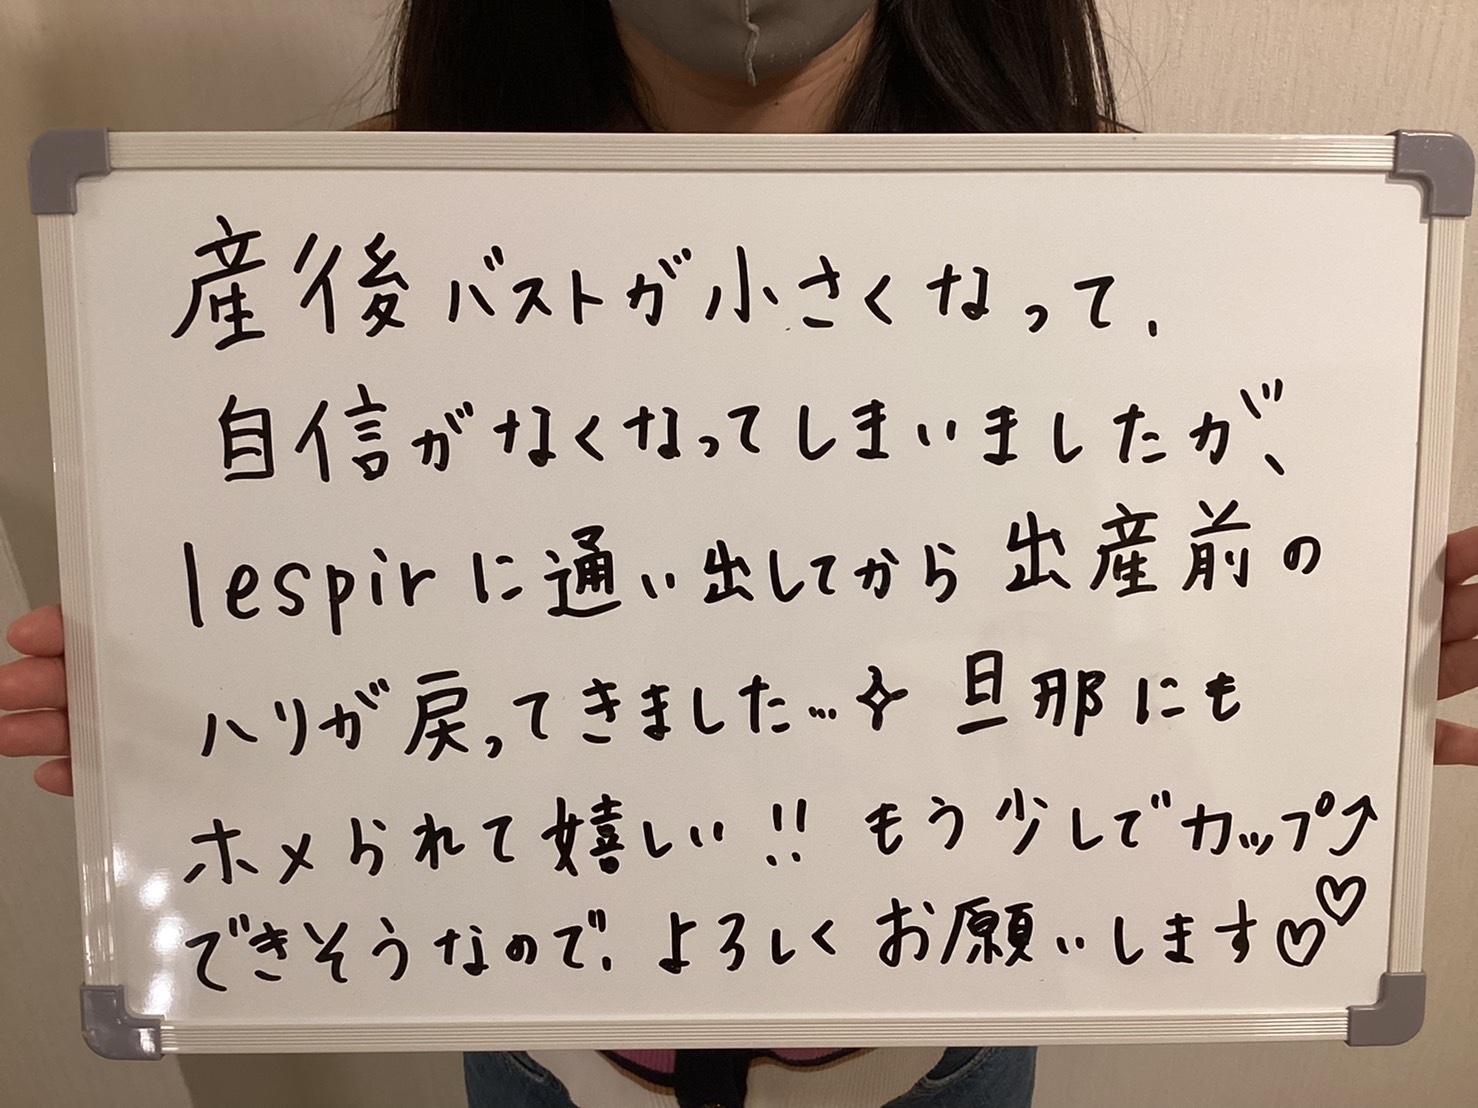 産後バストが小さくなって、
自信がなくなってしまいましたが、
lespirに通い出してから出産前の
ハリが戻ってきました…✧ 旦那にも
ホメられて嬉しい!! もう少しでカップ⤴
できそうなので、よろしくお願いします♡♡